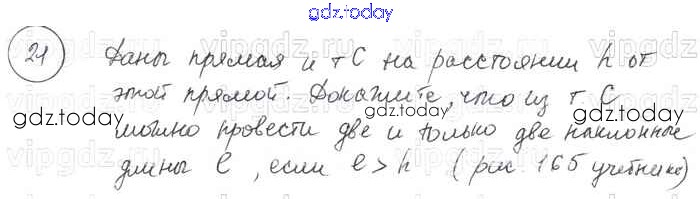 gdz.today
21 Даны прямая и т С на расстоянии h от
этой прямой. Докажите, что из т С
gdz.today gdz.today
можно провести две и только две наклонные
длины l, если l > h (рис 165 учебника)